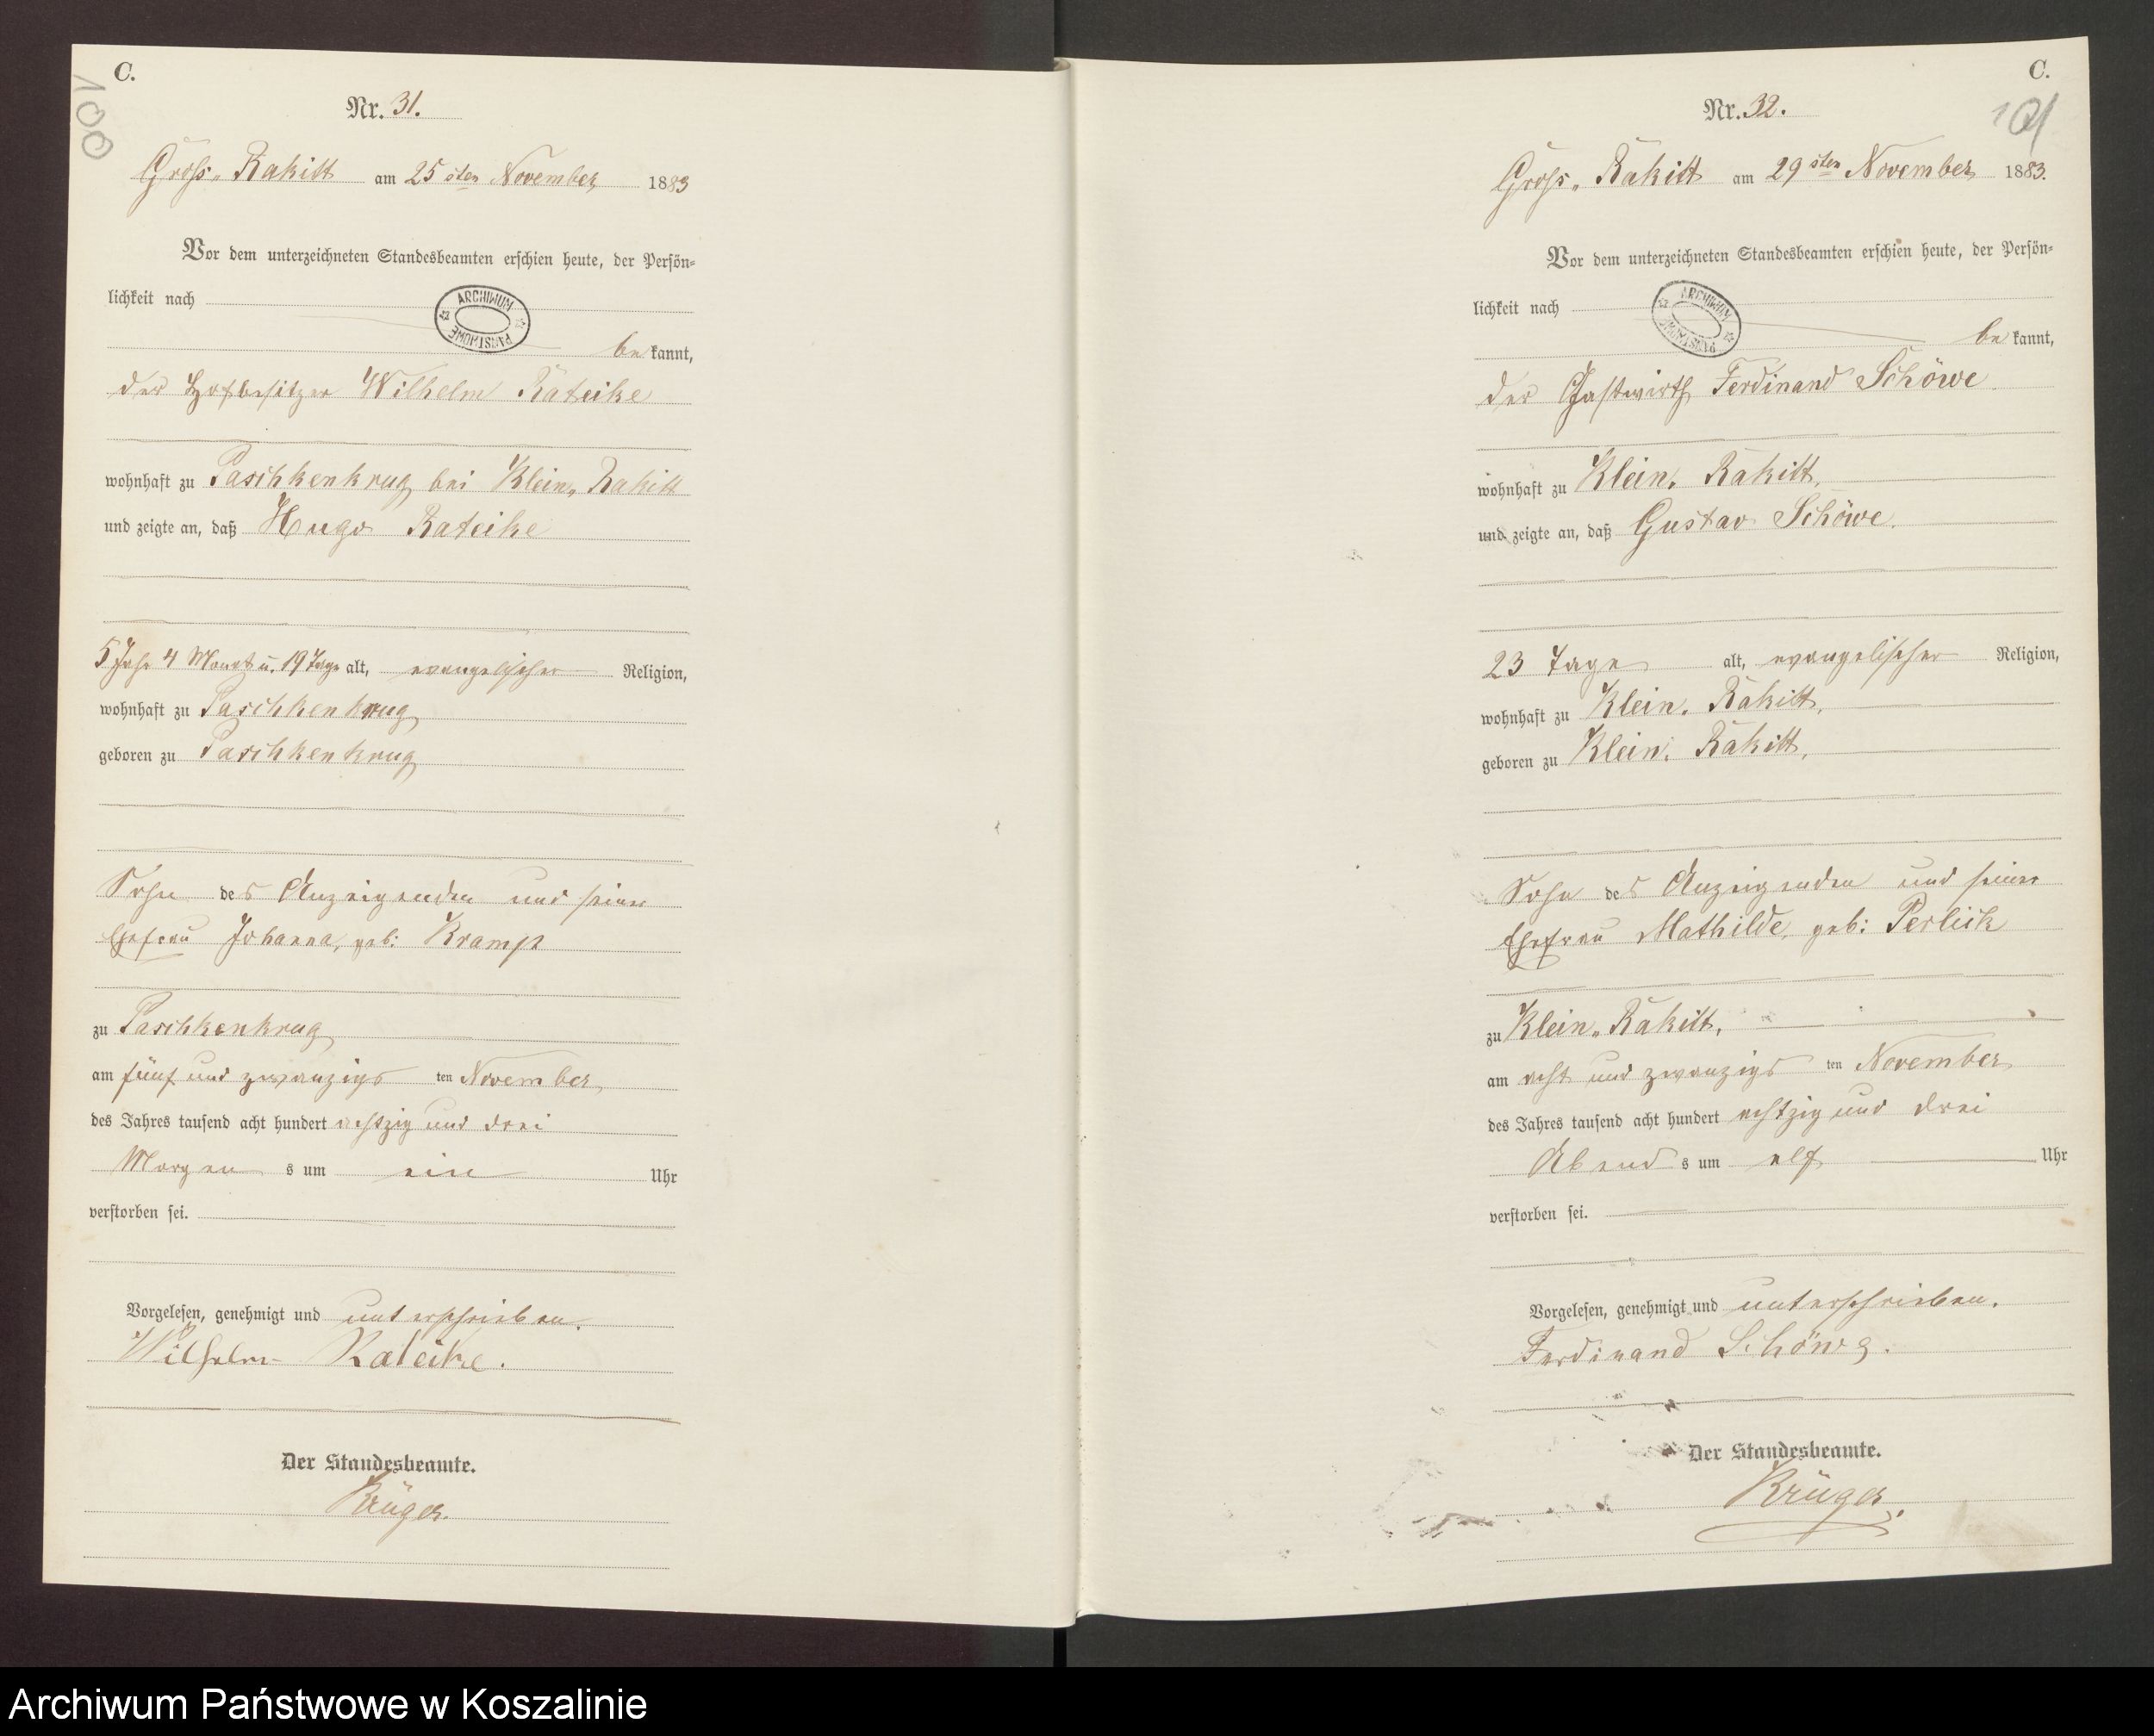 C.
100
Nr. 31.
Gross-Rakitt am 25sten November 1883
Vor dem unterzeichneten Standesbeamten erschien heute, der Persön-
lichkeit nach
ARCHIWUM PAŃSTWOWE
bekannt,
der Hofbesitzer Wilhelm Rateike
wohnhaft zu Paschkenkrug bei Klein-Rakitt
und zeigte an, daß Hugo Rateike
5 Jahr 4 Monat u. 19 Tage alt, evangelischer Religion,
wohnhaft zu Paschkenkrug
geboren zu Paschkenkrug
Sohn des Anzeigenden und seiner
Ehefrau Johanna, geb: Kramp
zu Paschkenkrug
am fünf und zwanzigsten November
des Jahres tausend acht hundert achtzig und drei
Morgens um ein Uhr
verstorben sei.
Vorgelesen, genehmigt und unterschrieben.
Wilhelm Rateike.
Der Standesbeamte.
Krüger.
C.
101
Nr. 32.
Gross-Rakitt am 29sten November 1883.
Vor dem unterzeichneten Standesbeamten erschien heute, der Persön-
lichkeit nach
ARCHIWUM PAŃSTWOWE
bekannt,
der Gastwirth Ferdinand Schöwe
wohnhaft zu Klein-Rakitt,
und zeigte an, daß Gustav Schöwe.
23 Tage alt, evangelischer Religion,
wohnhaft zu Klein-Rakitt,
geboren zu Klein-Rakitt,
Sohn des Anzeigenden und seiner
Ehefrau Mathilde, geb: Perlick
zu Klein-Rakitt,
am acht und zwanzigsten November
des Jahres tausend acht hundert achtzig und drei
Abends um elf Uhr
verstorben sei.
Vorgelesen, genehmigt und unterschrieben.
Ferdinand Schöwe.
Der Standesbeamte.
Krüger.
Archiwum Państwowe w Koszalinie